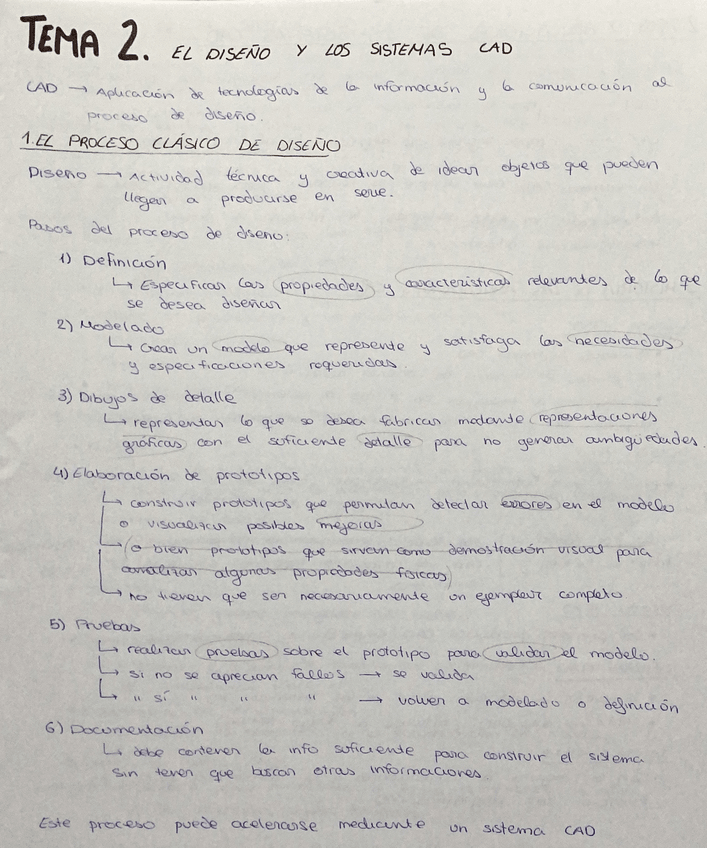 TEMA 2. EL DISEÑO Y LOS SISTEMAS CAD
CAD → Aplicación de tecnologías de la información y la comunicación al
proceso de diseño.
1. EL PROCESO CLÁSICO DE DISEÑO
Diseño → Actividad técnica y creativa de idear objetos que pueden
llegar a producirse en serie.
Pasos del proceso de diseño:
1) Definición
↳ Especificar las propiedades y características relevantes de lo que
se desea diseñar
2) Modelado
↳ Crear un modelo que represente y satisfaga las necesidades
y especificaciones requeridas.
3) Dibujos de detalle
↳ representar lo que se desea fabricar mediante representaciones
gráficas con el suficiente detalle para no generar ambigüedades.
4) Elaboración de prototipos
↳ construir prototipos que permitan detectar errores en el modelo
o visualizar posibles mejoras
↳ (o bien prototipos que sirvan como demostración visual para
analizar algunas propiedades físicas)
↳ no tienen que ser necesariamente un ejemplar completo
5) Pruebas
↳ realizar pruebas sobre el prototipo para validar el modelo.
↳ si no se aprecian fallos → se valida
↳ " sí " " " → volver a modelado o definición
6) Documentación
↳ debe contener la info suficiente para construir el sistema
sin tener que buscar otras informaciones
Este proceso puede acelerarse mediante un sistema CAD